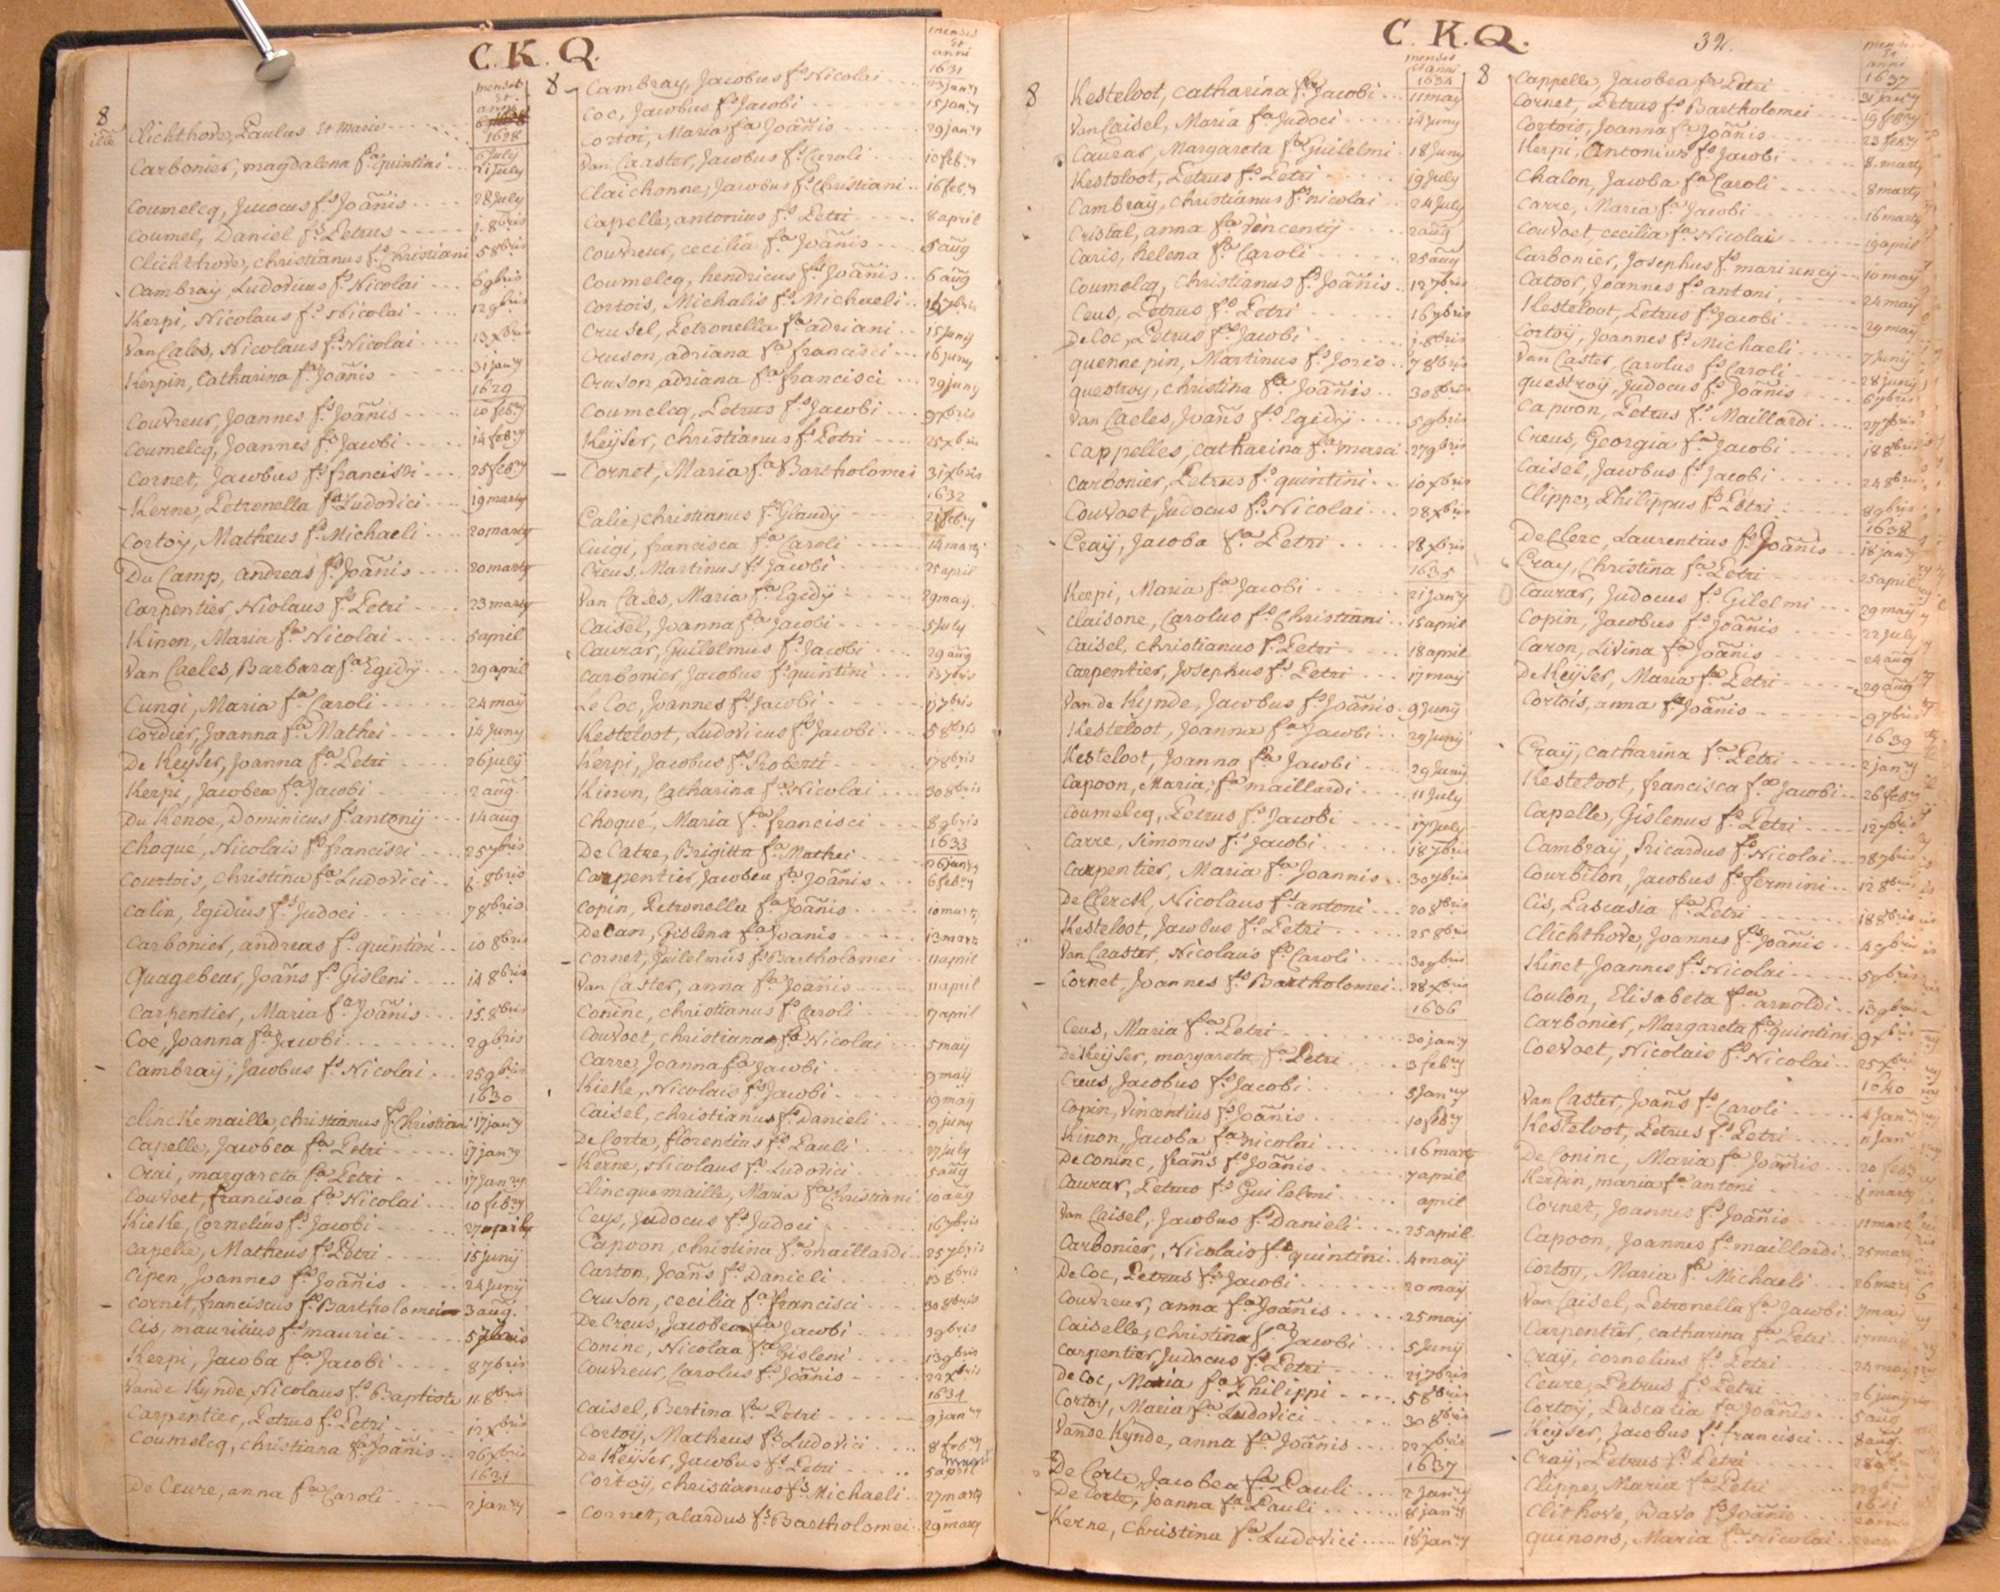 C. K. Q.
mensis
et
anni
8
1628
Clichthove, Paulus et Maria
6 July
Carbonier, magdalena fa quintini 21 July
Coumelcq, Jucocus fs Joañis 28 July
Coumel, Daniel fs Petrus 1. 8bris
Clichthove, christianus fs Christiani 5 8bris
Cambraÿ, Ludovicus fs Nicolai 6 9bris
Kerpi, Nicolaus fs Nicolai 12 9bris
Van Cales, Nicolaus fs Nicolai 13 xbris
Kerpin, Catharina fa Joañis 31 janry
1629
Couvreur, Joannes fs Joañis 10 febry
Coumelcq, Joannes fs Jacobi 14 febry
Cornet, Jacobus fs francisci 25 febry
Kerne, Petronella fa Ludovici 19 marty
Cortoÿ, Matheus fs Michaeli 20 marty
Du Camp, andreas fs Joañis 20 marty
Carpentier, Niolaus fs Petri 23 marty
Kinon, Maria fa Nicolai 5 april
Van Caeles, Barbara fa Egidÿ 29 april
Cungi, Maria fa Caroli 24 maÿ
Cordier, Joanna fa Mathei 14 Juny
De Keÿser, Joanna fa Petri 26 julÿ
Kerpi, Jacobea fa Jacobi 2 aug
Du Kenoe, Dominicus fs antonÿ 14 aug
Choqué, Nicolais fs francisci 25 7bris
Courtois, Christina fa Ludovici 6. 8bris
Calin, Egidius fs Judoci 7 8bris
Carbonier, andreas fs quintini 10 8bris
Quagebeur, Joañs fs Gisleni 14 8bris
Carpentier, Maria fa Joañis 15. 8bris
Coe, Joanna fa Jacobi 2 9bris
Cambraÿ, Jacobus fs Nicolai 25 9bris
1630
Clinckemaille, christianus fs Christiani 17 janry
Capelle, Jacobea fa Petri 17 janry
Crai, margareta fa Petri 17 janry
Couvoet, francisca fa Nicolai 10 febry
Kieke, Cornelius fs Jacobi 27 april
Capelle, Matheus fs Petri 15 junÿ
Cipen, Joannes fs Joañis 24 Junÿ
Cornet, franciscus fs Bartholomei 3 aug.
Cis, mauritius fs maurici 5 7bris
Kerpi, Jacoba fa Jacobi 8 7bris
Vande Kynde, Nicolaus fs Baptiste 11 8bris
Carpentier, Petrus fs Petri 12 xbris
Coumelcq, christiana fa Joañis 26 xbris
1631
De Ceure, anna fa Caroli 2 janry
mensis
et
anni
1631
8
Cambray, Jacobus fs Nicolai
Coc, Jacobus fs Jacobi 15 janry
Cortoi, Maria fa Joañis 29 janry
Van Caaster, Jacobus fs Caroli 10 febry
Claichonne, Jacobus fs Christiani 16 febry
Capelle, antonius fs Petri 8 april
Couvreur, cecilia fa Joañis 5 aug
Coumelcq, hendricus fs Joañis 6 aug
Cortois, Michalis fs Michaeli 7bris
Crusel, Petronella fa adriani 15 junÿ
Cruson, adriana fa francisci 16 juny
Cruson, adriana fa francisci 29 juny
Coumelcq, Petrus fs Jacobi 9 xbris
Keÿser, christianus fs Petri 25 xbris
Cornet, Maria fa Bartholomei 31 xbris
1632
Calie, christianus fs Glaudÿ febry
Cuigi, francisca fa Caroli 14 marti
Creus, Martinus fs Jacobi 25 april
Van Cales, Maria fa Egidÿ 29 maÿ
Caisel, Joanna fa Jacobi 5 july
Caurar, Guilelmus fs Jacobi 29 aug
Carbonier, Jacobus fs quintini 13 7bris
Le Coc, Joannes fs Jacobi 17 bris
Kesteloot, Ludovicus fs Jacobi 5 8bris
Kerpi, Jacobus fs Roberti 17 8bris
Kinon, Catharina fa Nicolai 30 8bris
Choqué, Maria fa francisci 8 9bris
1633
De Catre, Brigitta fa Mathei 26 janry
Carpentier, Jacobea fa Joañis 6 febry
Copin, Petronella fa Joañis 10 mart
De Can, Gislena fa Joanis 13 mart
Cornet, Guilelmus fs Bartholomei 11 april
Van Caster, anna fa Joañis 11 april
Coninc, christianus fs Caroli 17 april
Couvoet, christiana fa Nicolai 5 maÿ
Carre, Joanna fa Jacobi 9 maÿ
Kieke, Nicolais fs Jacobi 19 maÿ
Caisel, christianus fs Danieli 9 juny
De Corte, florentius fs Pauli 27 july
Kerne, Nicolaus fs Ludovici 5 aug
Clincquemaille, Maria fa Christiani 10 aug
Ceys, Judocus fs Judoci 16 7bris
Capoon, christina fa maillardi 25 7bris
Carton, Joañs fs Danieli 13 8bris
Cruson, cecilia fa francisci 30 8bris
De Creus, Jacobea fa Jacobi 3 9bris
Coninc, Nicolaa fa Gisleni 13 9bris
Couvreur, Carolus fs Joañis 22 xbris
1634
Caisel, Bertina fa Petri 9 janry
Cortoÿ, Matheus fs Ludovici 8 febry
De Keÿser, Jacobus fs Petri 5
Cortoÿ, christianus fs Michaeli 27 marty
Cornet, alardus fs Bartholomei 29 marty
C. K. Q.
32.
mensis
et anni
1634
8
Kesteloot, Catharina fa Jacobi 11 maÿ
Van Caisel, Maria fa Judoci 14 Juny
Caurar, Margareta fa Guilelmi 18 Juny
Kesteloot, Petrus fs Petri 19 July
Cambraÿ, christianus fs nicolai 24 July
Cristal, anna fa vincentÿ 2 aug
Caris, helena fa Caroli 25 aug
Coumelcq, Christianus fs Joañis 12 7bris
Ceus, Petrus fs Petri 16 7bris
De Coc, Petrus fs Jacobi 1. 8bris
quennepin, Martinus fs Joris 7 8bris
questroy, christina fa Joañis 30 8bris
Van Caeles, Joañs fs Egidÿ 5 9bris
Cappelles, catharina fa mara 27 9bris
Carbonier, Petrus fs quintini 10 xbris
Couvoet, Judocus fs Nicolai 28 xbris
Craÿ, Jacoba fa Petri 28 xbris
1635
Kerpi, Maria fa Jacobi 21 janry
Claisone, Carolus fs Christiani 15 april
Caisel, christianus fs Petri 18 april
Carpentier, Josephus fs Petri 17 maÿ
Van de Kynde, Jacobus fs Joañis 9 Junÿ
Kesteloot, Joanna fa Jacobi 29 junÿ
Kesteloot, Joanna fa Jacobi 29 Junÿ
Capoon, Maria, fa maillardi 11 July
Coumelcq, Petrus fs Jacobi 17 July
Carre, Simonus fs Jacobi 18 7bris
Carpentier, Maria fa Joannis 30 7bris
De Clerck, Nicolaus fs antoni 20 8bris
Kesteloot, Jacobus fs Petri 25 8bris
Van Caaster, Nicolaus fs Caroli 30 9bris
Cornet, Joannes fs Bartholomei 28 xbris
1636
Ceus, Maria fa Petri 30 janry
De Keÿser, margareta fa Petri 3 febry
Creus, Jacobus fs Jacobi 5 janry
Copin, Vincentius fs Joañis 10 febry
Kinon, Jacoba fa nicolai 16 mart
De Coninc, frañs fs Joañis 7 april
Caurar, Petrus fs Guilelmi april
Van Caisel, Jacobus fs Danieli 25 april
Carbonier, Nicolais fs quintini 4 maÿ
De Coc, Petrus fs Jacobi 20 maÿ
Couvreur, anna fa Joañis 25 maÿ
Caiselle, christina fa Jacobi 5 Junÿ
Carpentier, Judocus fs Petri 21 7bris
De Coc, Maria fa Philippi 5 8bris
Cortoy, Maria fa Ludovici 30 8bris
Vande Kynde, anna fa Joañis 22 xbris
1637
De Corte, Jacobea fa Pauli 2 janry
De Corte, Joanna fa Pauli 8 janry
Kerne, Christina fa Ludovici 18 janry
mensis
et
anni
1637
8
Cappelle, Jacobea fa Petri 31 janry
Cornet, Petrus fs Bartholomei 19 febry
Cortois, Joanna fa Joañis 23 febry
Kerpi, Antonius fs Jacobi 8 marty
Chalon, Jacoba fa Caroli 8 marty
Carre, Maria fa Jacobi 16 marty
Couvoet, cecilia fa Nicolai 19 april
Carbonier, Josephus fs 10 maÿ
Catoor, Joannes fs antoni 24 maÿ
Kesteloot, Petrus fs Jacobi 29 maÿ
Cortoÿ, Joannes fs Michaeli 7 junÿ
Van Caster, Carolus fs Caroli 28 junÿ
questroÿ, Judocus fs Joañis 6 7bris
Capoon, Petrus fs Maillardi 27 7bris
Creus, Georgia fa Jacobi 18 8bris
Caisel, Jacobus fs Jacobi 24 8bris
Clippe, Philippus fs Petri 8 9bris
1638
De Clerc, Laurentius fs Joañis 18 janry
Cray, Christina fa Petri 25 april
Caurar, Judocus fs Gilelmi 29 maÿ
Copin, Jacobus fs Joañis 22 july
Caron, Livina fa Joañis 24 aug
De Keÿser, Maria fa Petri 29 aug
Cortois, anna fa Joañis 9 7bris
1639
Craÿ, catharina fa Petri 2 janry
Kesteloot, francisca fa Jacobi 26 febry
Capelle, Gislenus fs Petri 12 7bris
Cambraÿ, Ricardus fs Nicolai 28 7bris
Courbilon, Jacobus fs fermini 12 8bris
Cis, Pascasia fa Petri 18 8bris
Clichthove, Joannes fs Joañis 4 9bris
Kinet Joannes fs Nicolai 5 9bris
Coulon, Elisabeta fa arnoldi 13 9bris
Carbonier, Margareta fa quintini 9 xbris
Coevoet, Nicolais fs Nicolai 25 xbris
1640
Van Caster, Joañs fs Caroli 4 janry
Kesteloot, Petrus fs Petri 11 janry
De Coninc, Maria fa Joañis 20 febry
Kerpin, maria fa antoni marty
Cornet, Joannes fs Joañis 11 mart
Capoon, Joannes fs maillardi 25 mart
Cortoy, Maria fa Michaeli 26 mart
Van Caisel, Petronella fa Jacobi 7 maÿ
Carpentier, catharina fa Petri 17 maÿ
Craÿ, cornelius fs Petri 24 maÿ
Ceure, Petrus fs Petri 26 junÿ
Cortoÿ, Pascasia fa Joañis 5 aug
Keÿser, Jacobus fs francisci 8 aug.
Craÿ, Petrus fs Petri
Clippe, Maria fa Petri
1641
Clithove, Bavo fs Joañis
quinons, Maria fa Nicolai